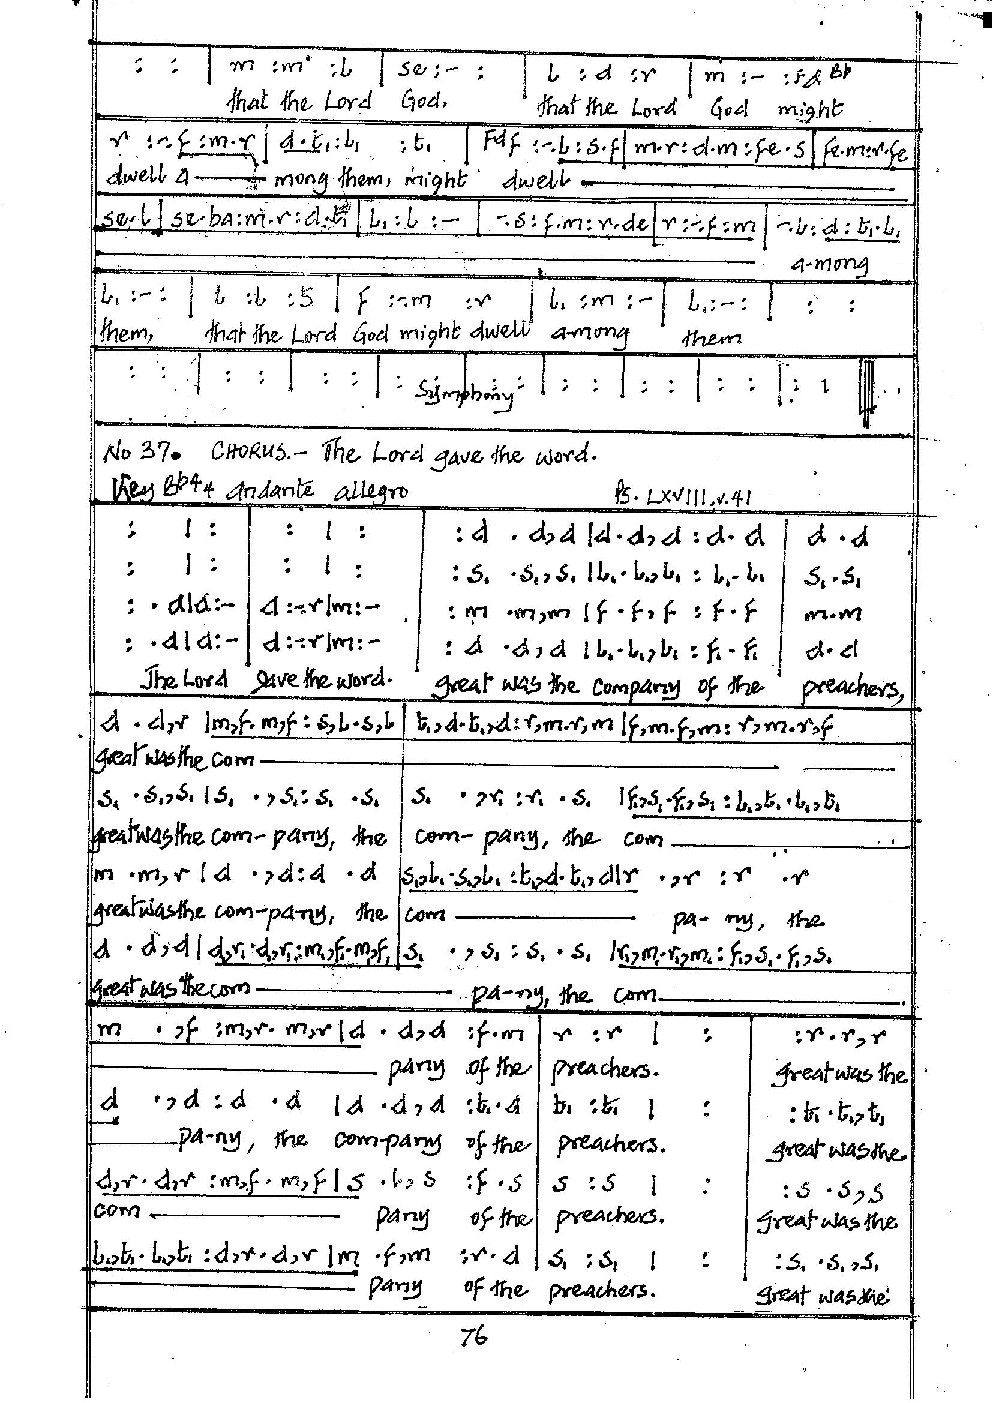 : : | m :m' :l | se :- : | l :d :r | m :- :fd Bb
that the Lord God, that the Lord God might
r :-.f :m.r | d.t₁:l₁ :t₁ | Fd f :-.l :s.f | m.r:d.m:fe.s | fe.m:r.fe
dwell a — mong them, might dwell —
se.l | se.ba:m.r:d.t₁ | l₁:l :- | -.s:f.m:r.de | r:-.f:m | -.l:d:t₁.l₁
a-mong
l₁ :- : | l :l :s | f :-.m :r | l₁ :m :- | l₁:-: | : :
them, that the Lord God might dwell among them
: : | : : | : : | : : | : : | : : | : : | : : | : :
Symphony
No 37. CHORUS.- The Lord gave the word.
Key Bb 44 andante allegro Ps. LXVIII,v.41
: | : | : | : | :d .d,d |d.d,d :d.d | d.d
: | : | : | : | :s₁ .s₁,s₁ |l₁.l₁,l₁ :l₁.l₁ | s₁.s₁
: .d|d:- | d:-.r|m:- | :m .m,m |f.f,f :f.f | m.m
: .d|d:- | d:-.r|m:- | :d .d,d |l₁.l₁,l₁ :f₁.f₁ | d.d
The Lord gave the word. great was the company of the preachers,
d .d,r |m,f.m,f:s,l.s,l | t₁,d.t₁,d:r,m.r,m |f,m.f,m:r,m.r,f
great was the com —
s₁ .s₁,s₁ |s₁ .,s₁:s₁ .s₁ | s₁ .,r₁:r₁ .s₁ |f₁,s₁.f₁,s₁:l₁,t₁.l₁,t₁
great was the com- pany, the com- pany, the com —
m .m,r |d .,d:d .d | s₁,l₁.s₁,l₁:t₁,d.t₁,d|r .,r :r .r
great was the com-pany, the com — pa- ny, the
d .d,d| d,r₁.d,r₁:m₁,f₁.m₁,f₁ | s₁ .,s₁:s₁ .s₁ |r₁,m₁.r₁,m₁:f₁,s₁.f₁,s₁
great was the com — pa-ny, the com —
m .,f :m,r.m,r|d .d,d :f.m | r :r | : | :r.r,r
pany of the preachers. great was the
d .,d:d .d |d .d,d :t₁.d | t₁ :t₁ | : | :t₁.t₁,t₁
pa-ny, the com-pany of the preachers. great was the
d,r.d,r :m,f.m,f|s .l,s :f.s | s :s | : | :s .s,s
com — pany of the preachers. great was the
l₁,t₁.l₁,t₁:d,r.d,r|m .f,m :r.d | s₁ :s₁ | : | :s₁ .s₁,s₁
pany of the preachers. great was the
76